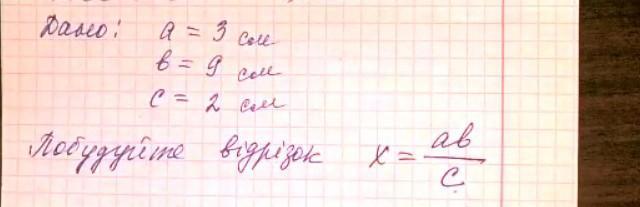 Дано: a = 3 см
в = 9 см
c = 2 см
Побудуйте відрізок x = ab/c